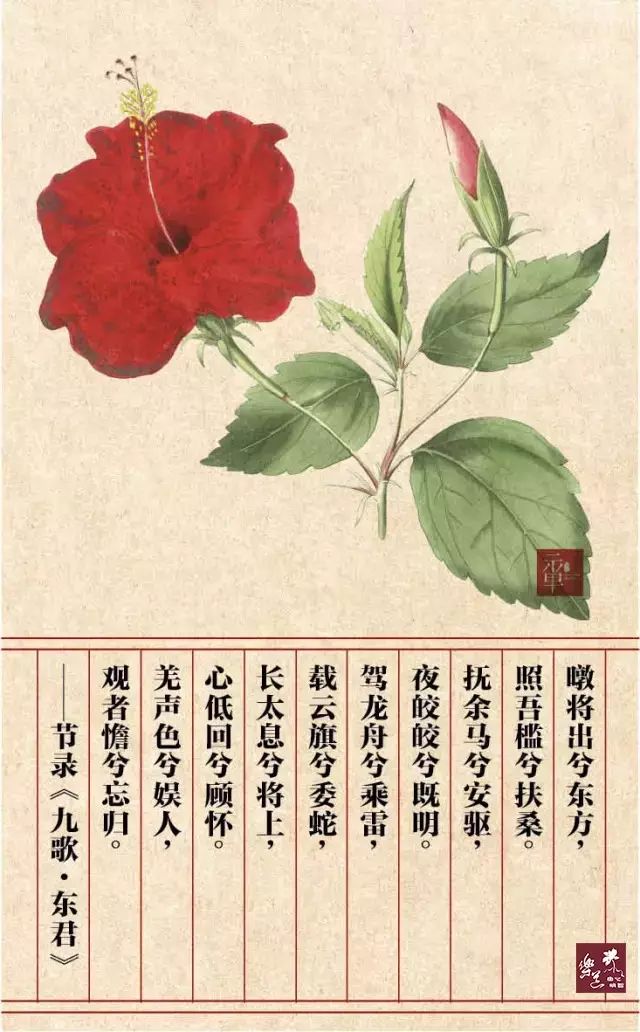 暾将出兮东方，
照吾槛兮扶桑。
抚余马兮安驱，
夜皎皎兮既明。
驾龙舟兮乘雷，
载云旗兮委蛇，
长太息兮将上，
心低回兮顾怀。
羌声色兮娱人，
观者憺兮忘归。
——节录《九歌·东君》